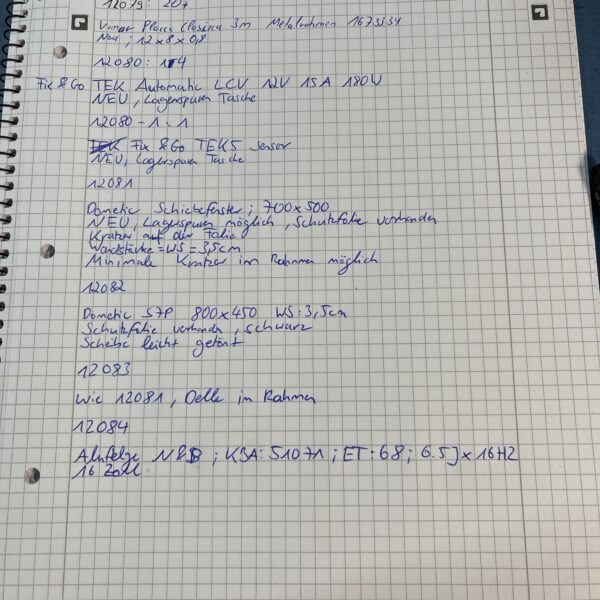 12079: 207
Vimar Placca Classica 3m Metallrahmen
Neu ; 12x8x0,8
12080: 194
Fix & Go TEK Automatic LCV 12V 15A 180W
NEU, Lagerspuren Tasche
12080-1: 1
Fix & Go TEK5 sensor
NEU, Lagerspuren Tasche
12081
Dometic Schiebefenster ; 700x500
NEU, Lagerspuren möglich, Schutzfolie vorhanden
Kratzer auf der Folie
Wandstärke = WS = 3,5cm
Minimale Kratzer im Rahmen möglich
12082
Dometic S7P 800x450 WS: 3,5cm
Schutzfolie vorhanden, schwarz
Scheibe leicht getönt
12083
Wie 12081, Delle in Rahmen
12084
Alufelge ; KBA: 51071 ; ET: 68 ; 6.5Jx16H2
16 Zoll